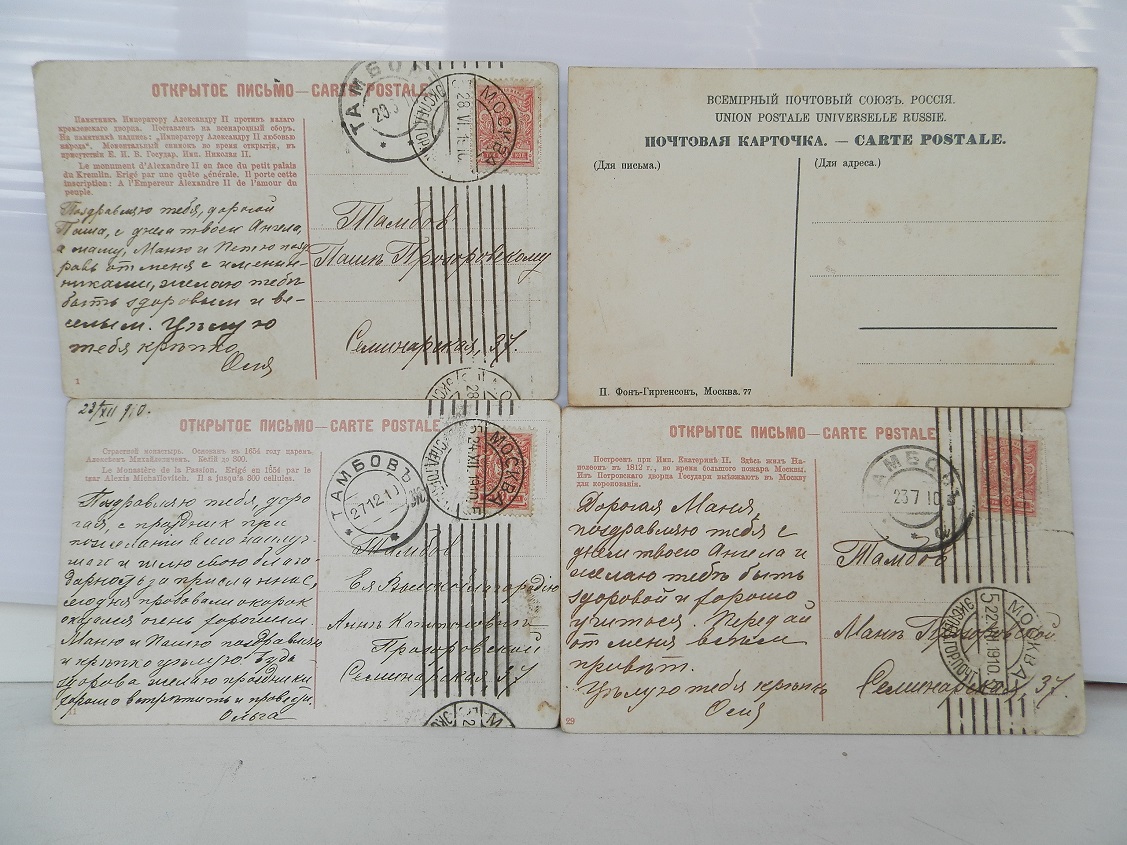 ОТКРЫТОЕ ПИСЬМО — CARTE POSTALE
Памятникъ Императору Александру II противъ малаго
кремлевскаго дворца. Поставленъ на всенародный сборъ.
На памятникѣ надпись: „Императору Александру II любовью
народа". Моментальный снимокъ во время открытія, въ
присутствіи Е. И. В. Государ. Имп. Николая II.
Le monument d'Alexandre II en face du petit palais
du Kremlin. Erigé par une quête générale. Il porte cette
inscription: A l'Empereur Alexandre II de l'amour du
peuple.
Поздравляю тебя, дорогой
Паша, с днем твоего Ангела,
а маму, Маню и Петю позд
равь от меня с именин-
никами, желаю тебѣ
быть здоровым и ве-
селым. Цѣлую
тебя крѣпко
Оля
1
ТАМБОВ
МОСКВА
28 VI
Тамбов
Пашѣ Прозоровскому
Семинарская, 37.
ВСЕМІРНЫЙ ПОЧТОВЫЙ СОЮЗЪ. РОССІЯ.
UNION POSTALE UNIVERSELLE RUSSIE.
ПОЧТОВАЯ КАРТОЧКА. — CARTE POSTALE.
(Для письма.)
(Для адреса.)
П. Фонъ-Гиргенсонъ, Москва. 77
23/XII 910.
ОТКРЫТОЕ ПИСЬМО — CARTE POSTALE
Страстной монастырь. Основанъ въ 1654 году царемъ
Алексѣемъ Михайловичемъ. Келій до 300.
Le Monastère de la Passion. Erigé en 1654 par le
tzar Alexis Michaïlovitch. Il a jusqu'à 300 cellules.
Поздравляю тебя, доро
гая, с праздник при
пожеланіи всего
шлю свою благо
дарность за присланные,
сегодня пробовали окорок
очень хорошим.
Маню и Пашу поздравляю
и крѣпко цѣлую. Будь
здорова желаю праздники
хорошо встрѣтить и провести.
Ольга
ТАМБОВЪ
27 12 10
МОСКВА
24 XII 1910
Тамбов
Ея Высокоблагородію
Аннѣ
Прозоровской
Семинарская 37
ОТКРЫТОЕ ПИСЬМО — CARTE POSTALE
Построенъ при Имп. Екатеринѣ II. Здѣсь жилъ На-
полеонъ въ 1812 г., во время большого пожара Москвы.
Изъ Петровскаго дворца Государи выѣзжаютъ въ Москву
для коронованія.
Дорогая Маня,
поздравляю тебя с
днем твоего Ангела и
желаю тебѣ быть
здоровой и хорошо
учиться. Передай
от меня всѣм
привѣт.
Цѣлую тебя крѣпко
Оля
29
ТАМБОВЪ
23 7 10
Тамбов
Манѣ Прозоровской
Семинарская, 37.
МОСКВА
5 22 VII 1910